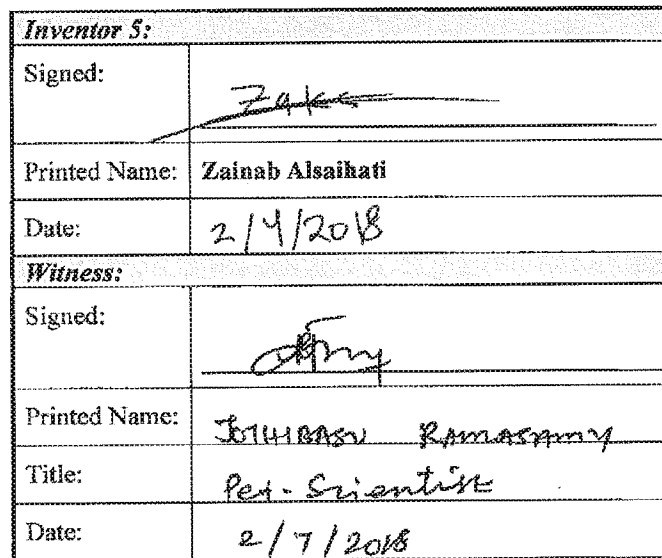 Inventor 5:
Signed:
Printed Name: Zainab Alsaihati
Date: 2/4/2018
Witness:
Signed:
Printed Name: JOTHIBASU RAMASAMY
Title: Pet-Scientist
Date: 2/7/2018